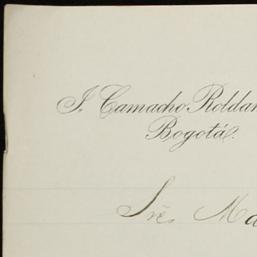 J. Camacho Roldan
Bogotá.
Sres Ma